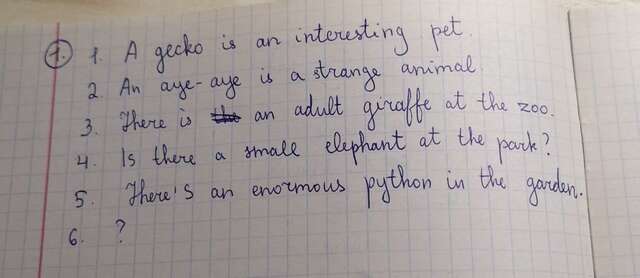 1. 1. A gecko is an interesting pet.
2. An aye-aye is a strange animal.
3. There is an adult giraffe at the zoo.
4. Is there a small elephant at the park?
5. There's an enormous python in the garden.
6. ?